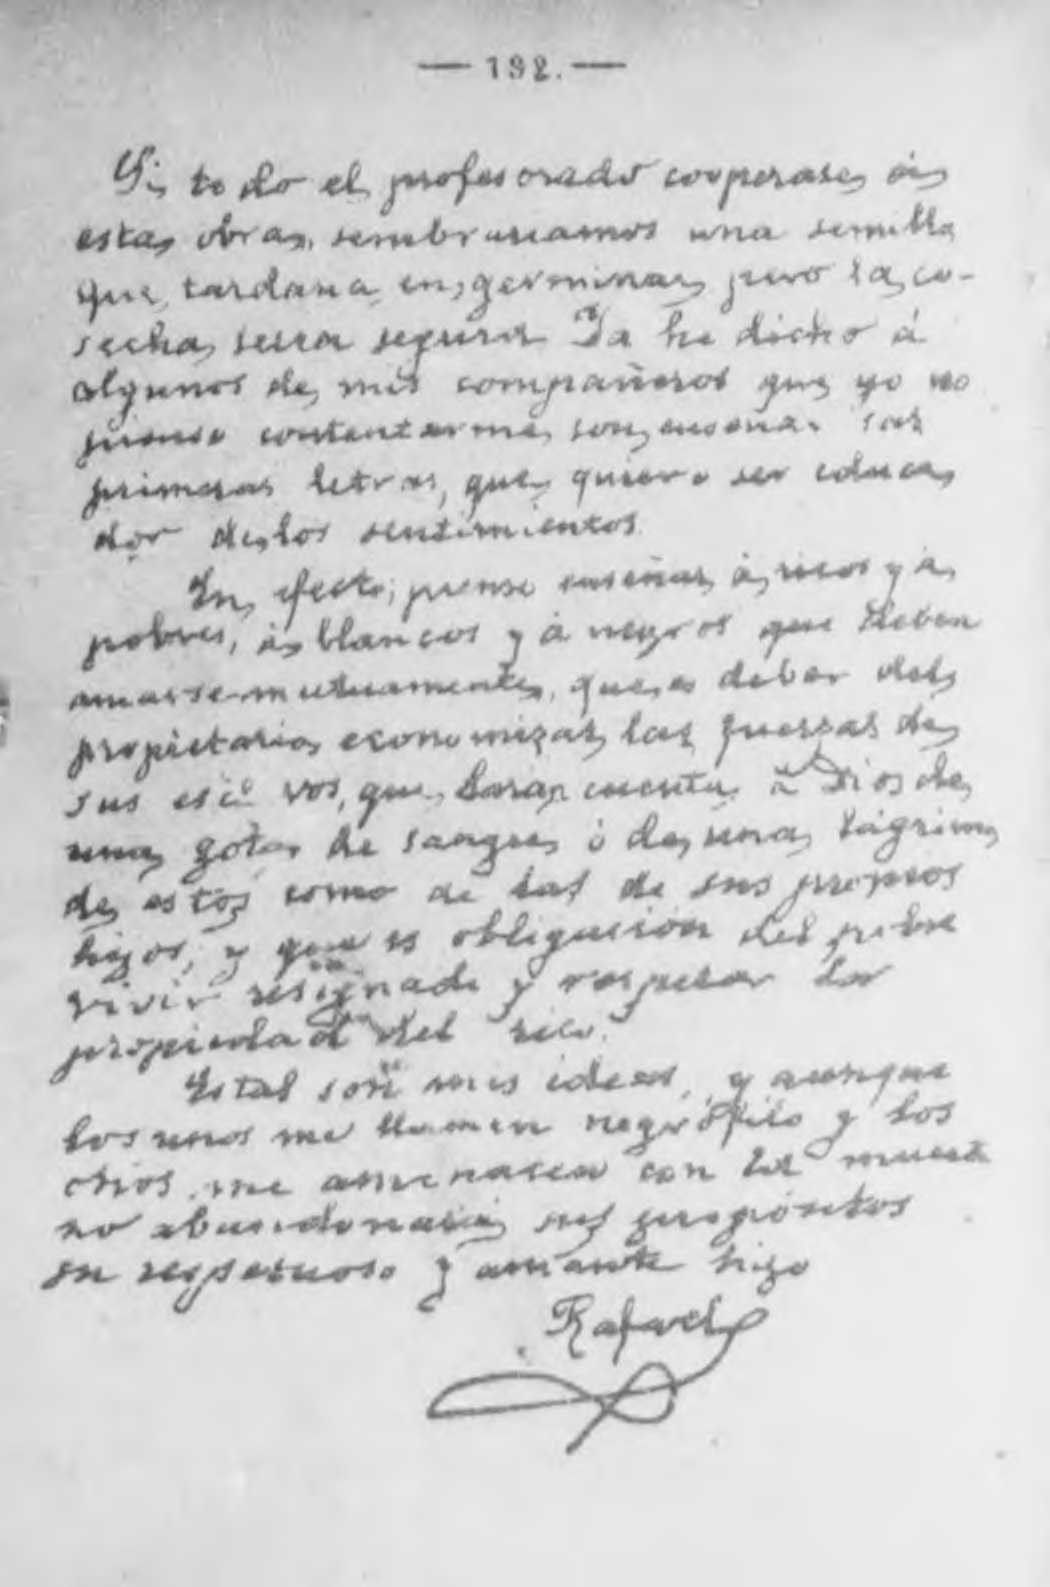 — 192. —
Si todo el profesorado cooperase á
esta obra, sembrariamos una semilla
que tardaria en germinar, pero la co-
secha seria segura. Ya he dicho á
algunos de mis compañeros que yo no
pienso contentarme con enseñar las
primeras letras, que quiero ser educa
dor de los sentimientos.
En efecto; pienso enseñar á ricos y á
pobres, á blancos y á negros que deben
amarse mutuamente, que es deber del
propietario economizar las fuerzas de
sus escl vos, que dará cuenta á Dios de
una gota de sangre ó de una lágrima
de estos como de las de sus propios
hijos, y que es obligación del pobre
vivir resignado y respetar la
propiedad del rico.
Estas son mis ideas, y aunque
los unos me llamen negrófilo y los
otros me amenacen con la muerte
no abandonará sus propósitos
su respetuoso y amante hijo
Rafael